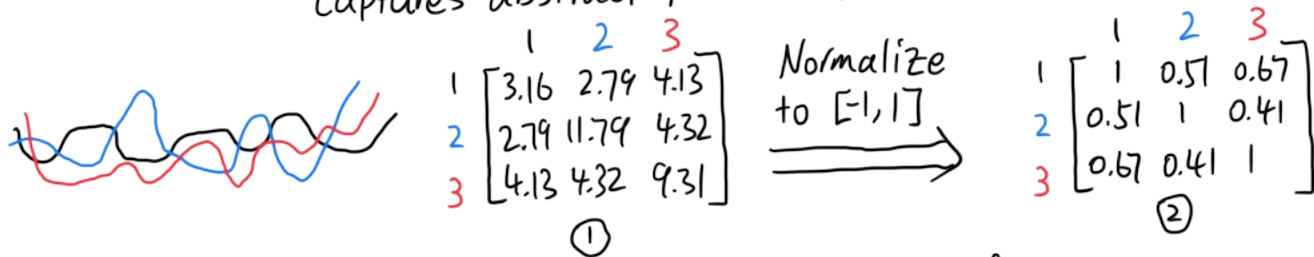 captures
1 2 3
1 [3.16 2.79 4.13]
2 [2.79 11.79 4.32]
3 [4.13 4.32 9.31]
①
Normalize
to [-1,1]
1 2 3
1 [1 0.51 0.67]
2 [0.51 1 0.41]
3 [0.67 0.41 1]
②